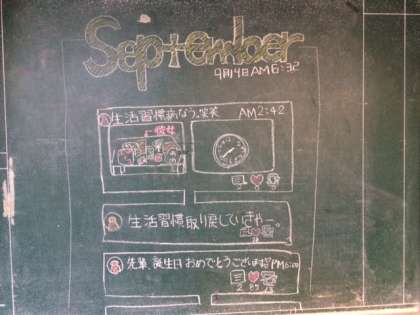 September
9月4日AM6:32
生活習慣病なう。笑笑 AM2:42
生活習慣取り戻していきやー。
先輩、誕生日おめでとうございます PM6:00
2